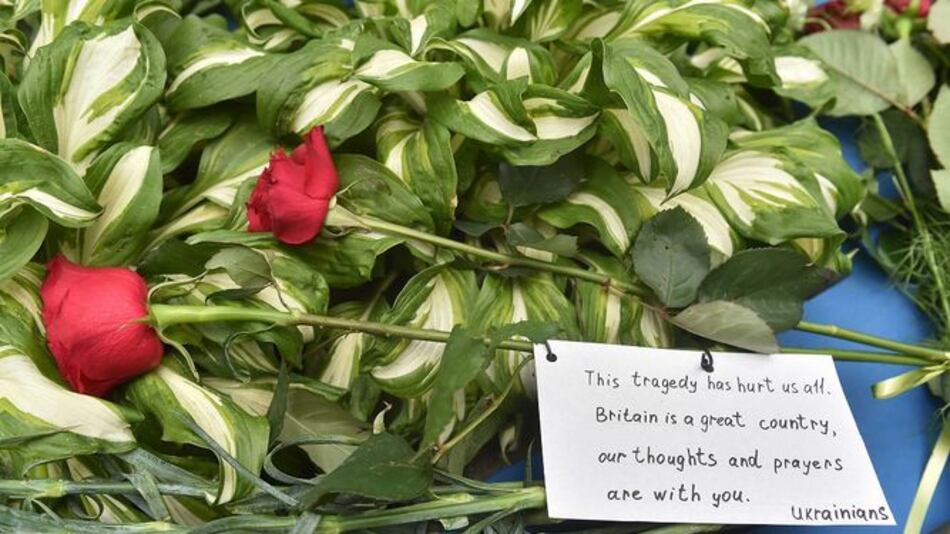 This tragedy has hurt us all.
Britain is a great country,
our thoughts and prayers
are with you.
Ukrainians